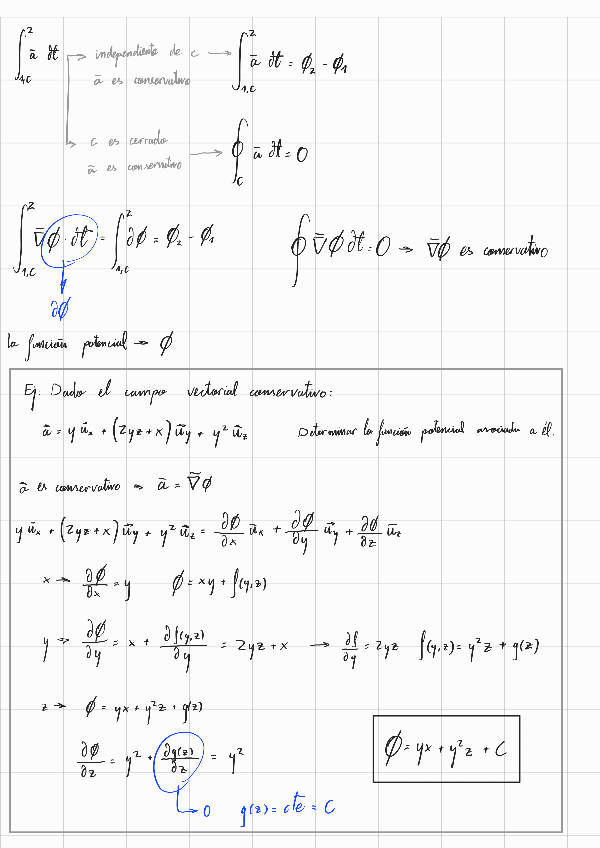 ∫₁,c² ā dt → independiente de c → ∫₁,c² ā dt = ϕ₂ - ϕ₁
ā es conservativo
c es cerrado → ∮c ā dt = 0
ā es conservativo
∫₁,c² ∇̄ϕ · dt = ∫₁,c² ∂ϕ = ϕ₂ - ϕ₁
∮ ∇̄ϕ dt = 0 → ∇̄ϕ es conservativo
∂ϕ
la función potencial → ϕ
Ej: Dado el campo vectorial conservativo:
ā = y ūx + (2yz + x) ūy + y² ūz
Determinar la función potencial asociada a él.
ā es conservativo ⇒ ā = ∇̄ϕ
y ūx + (2yz + x) ūy + y² ūz = ∂ϕ/∂x ūx + ∂ϕ/∂y ūy + ∂ϕ/∂z ūz
x → ∂ϕ/∂x = y ϕ = xy + f(y,z)
y → ∂ϕ/∂y = x + ∂f(y,z)/∂y = 2yz + x → ∂f/∂y = 2yz f(y,z) = y²z + g(z)
z → ϕ = yx + y²z + g(z)
∂ϕ/∂z = y² + ∂g(z)/∂z = y²
ϕ = yx + y²z + C
0 g(z) = cte = C